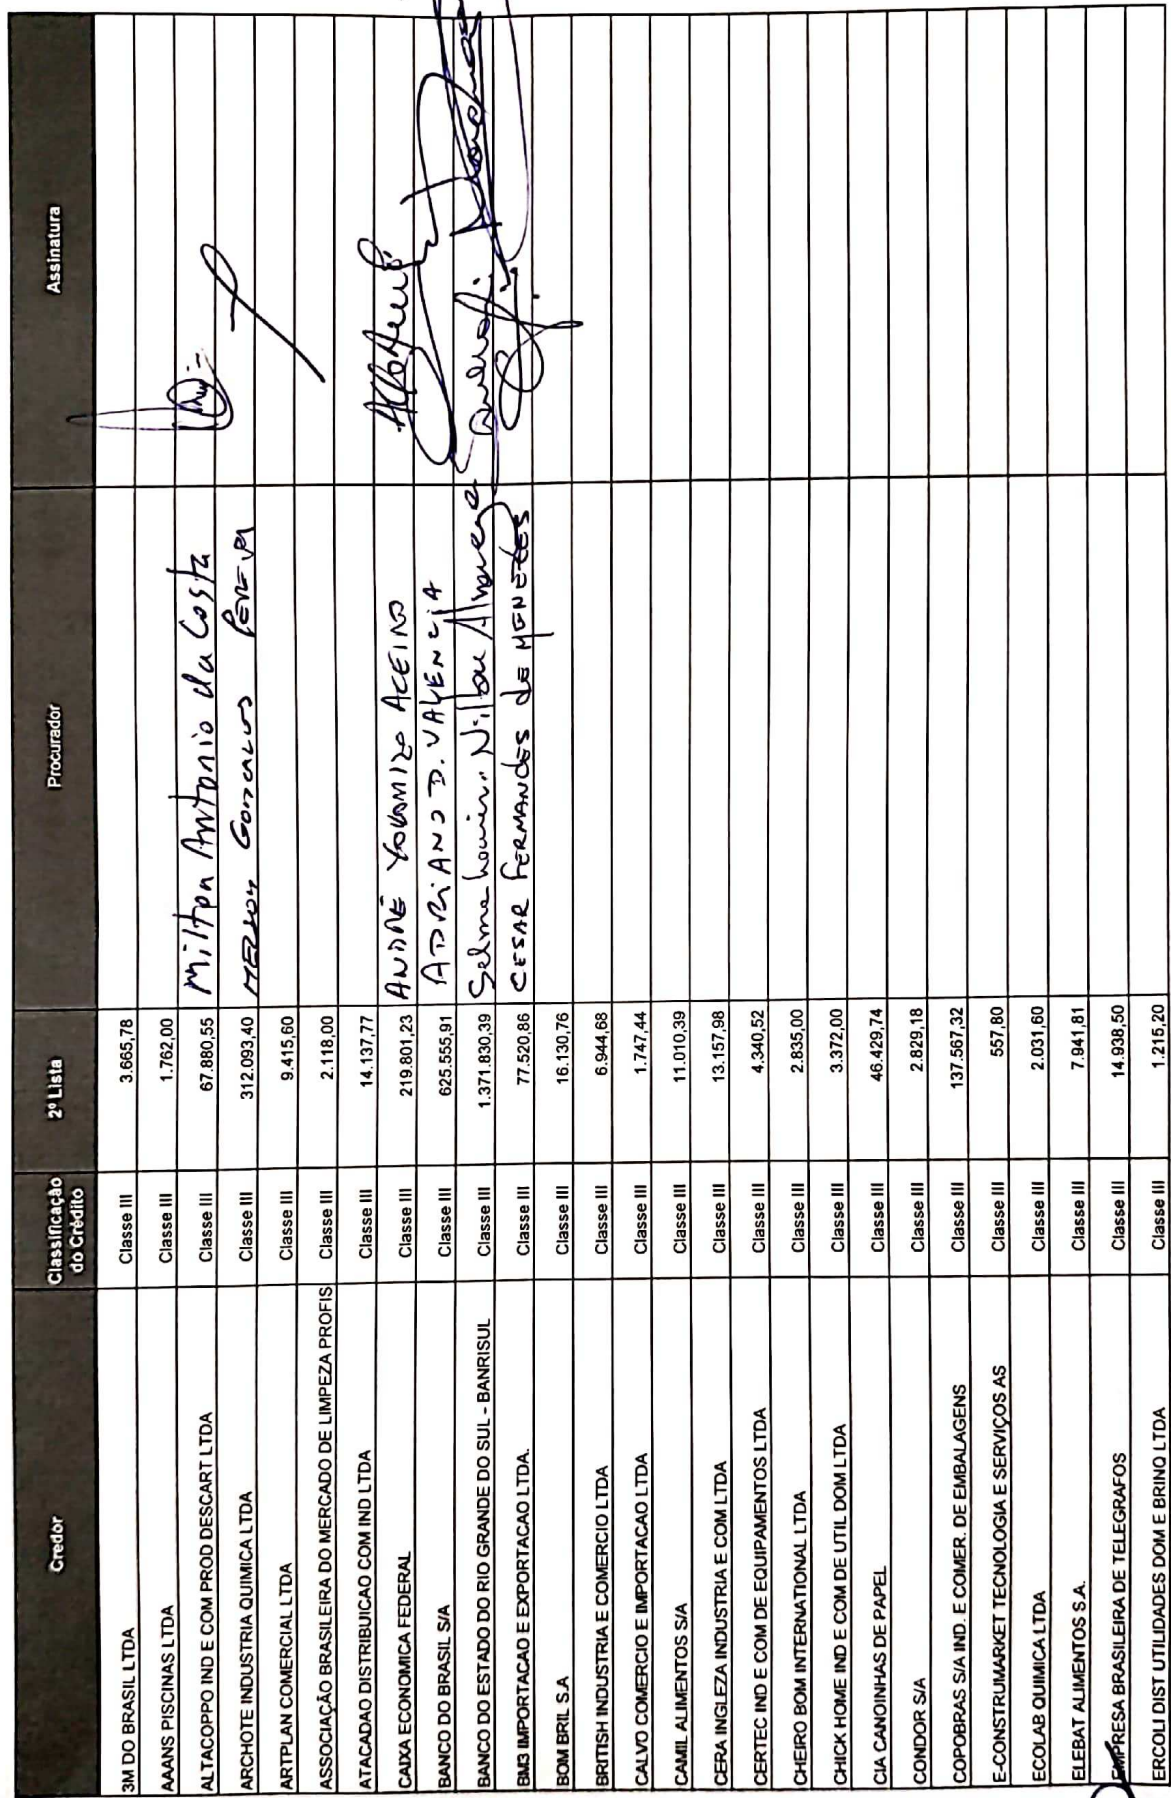 Credor Classificação do Crédito 2º Lista Procurador Assinatura
3M DO BRASIL LTDA Classe III 3.665,78
AAANS PISCINAS LTDA Classe III 1.762,00
ALTACOPPO IND E COM PROD DESCART LTDA Classe III 67.880,55 Milton Antonio da Costa
ARCHOTE INDUSTRIA QUIMICA LTDA Classe III 312.093,40
ARTPLAN COMERCIAL LTDA Classe III 9.415,60
ASSOCIAÇÃO BRASILEIRA DO MERCADO DE LIMPEZA PROFIS Classe III 2.118,00
ATACADAO DISTRIBUICAO COM IND LTDA Classe III 14.137,77
CAIXA ECONOMICA FEDERAL Classe III 219.801,23 ANDRÉ ACEIRO
BANCO DO BRASIL S/A Classe III 625.555,91 ADRIANO D. VALENCIA
BANCO DO ESTADO DO RIO GRANDE DO SUL - BANRISUL Classe III 1.371.830,39
BM3 IMPORTACAO E EXPORTACAO LTDA. Classe III 77.520,86 CESAR FERNANDES de MENEZES
BOM BRIL S.A Classe III 16.130,76
BRITISH INDUSTRIA E COMERCIO LTDA Classe III 6.944,68
CALVO COMERCIO E IMPORTACAO LTDA Classe III 1.747,44
CAMIL ALIMENTOS S/A Classe III 11.010,39
CERA INGLEZA INDUSTRIA E COM LTDA Classe III 13.157,98
CERTEC IND E COM DE EQUIPAMENTOS LTDA Classe III 4.340,52
CHEIRO BOM INTERNATIONAL LTDA Classe III 2.835,00
CHICK HOME IND E COM DE UTIL DOM LTDA Classe III 3.372,00
CIA CANOINHAS DE PAPEL Classe III 46.429,74
CONDOR S/A Classe III 2.829,18
COPOBRAS S/A IND. E COMER. DE EMBALAGENS Classe III 137.567,32
E-CONSTRUMARKET TECNOLOGIA E SERVIÇOS AS Classe III 557,80
ECOLAB QUIMICA LTDA Classe III 2.031,60
ELEBAT ALIMENTOS S.A. Classe III 7.941,81
EMPRESA BRASILEIRA DE TELEGRAFOS Classe III 14.938,50
ERCOLI DIST UTILIDADES DOM E BRINQ LTDA Classe III 1.215,20